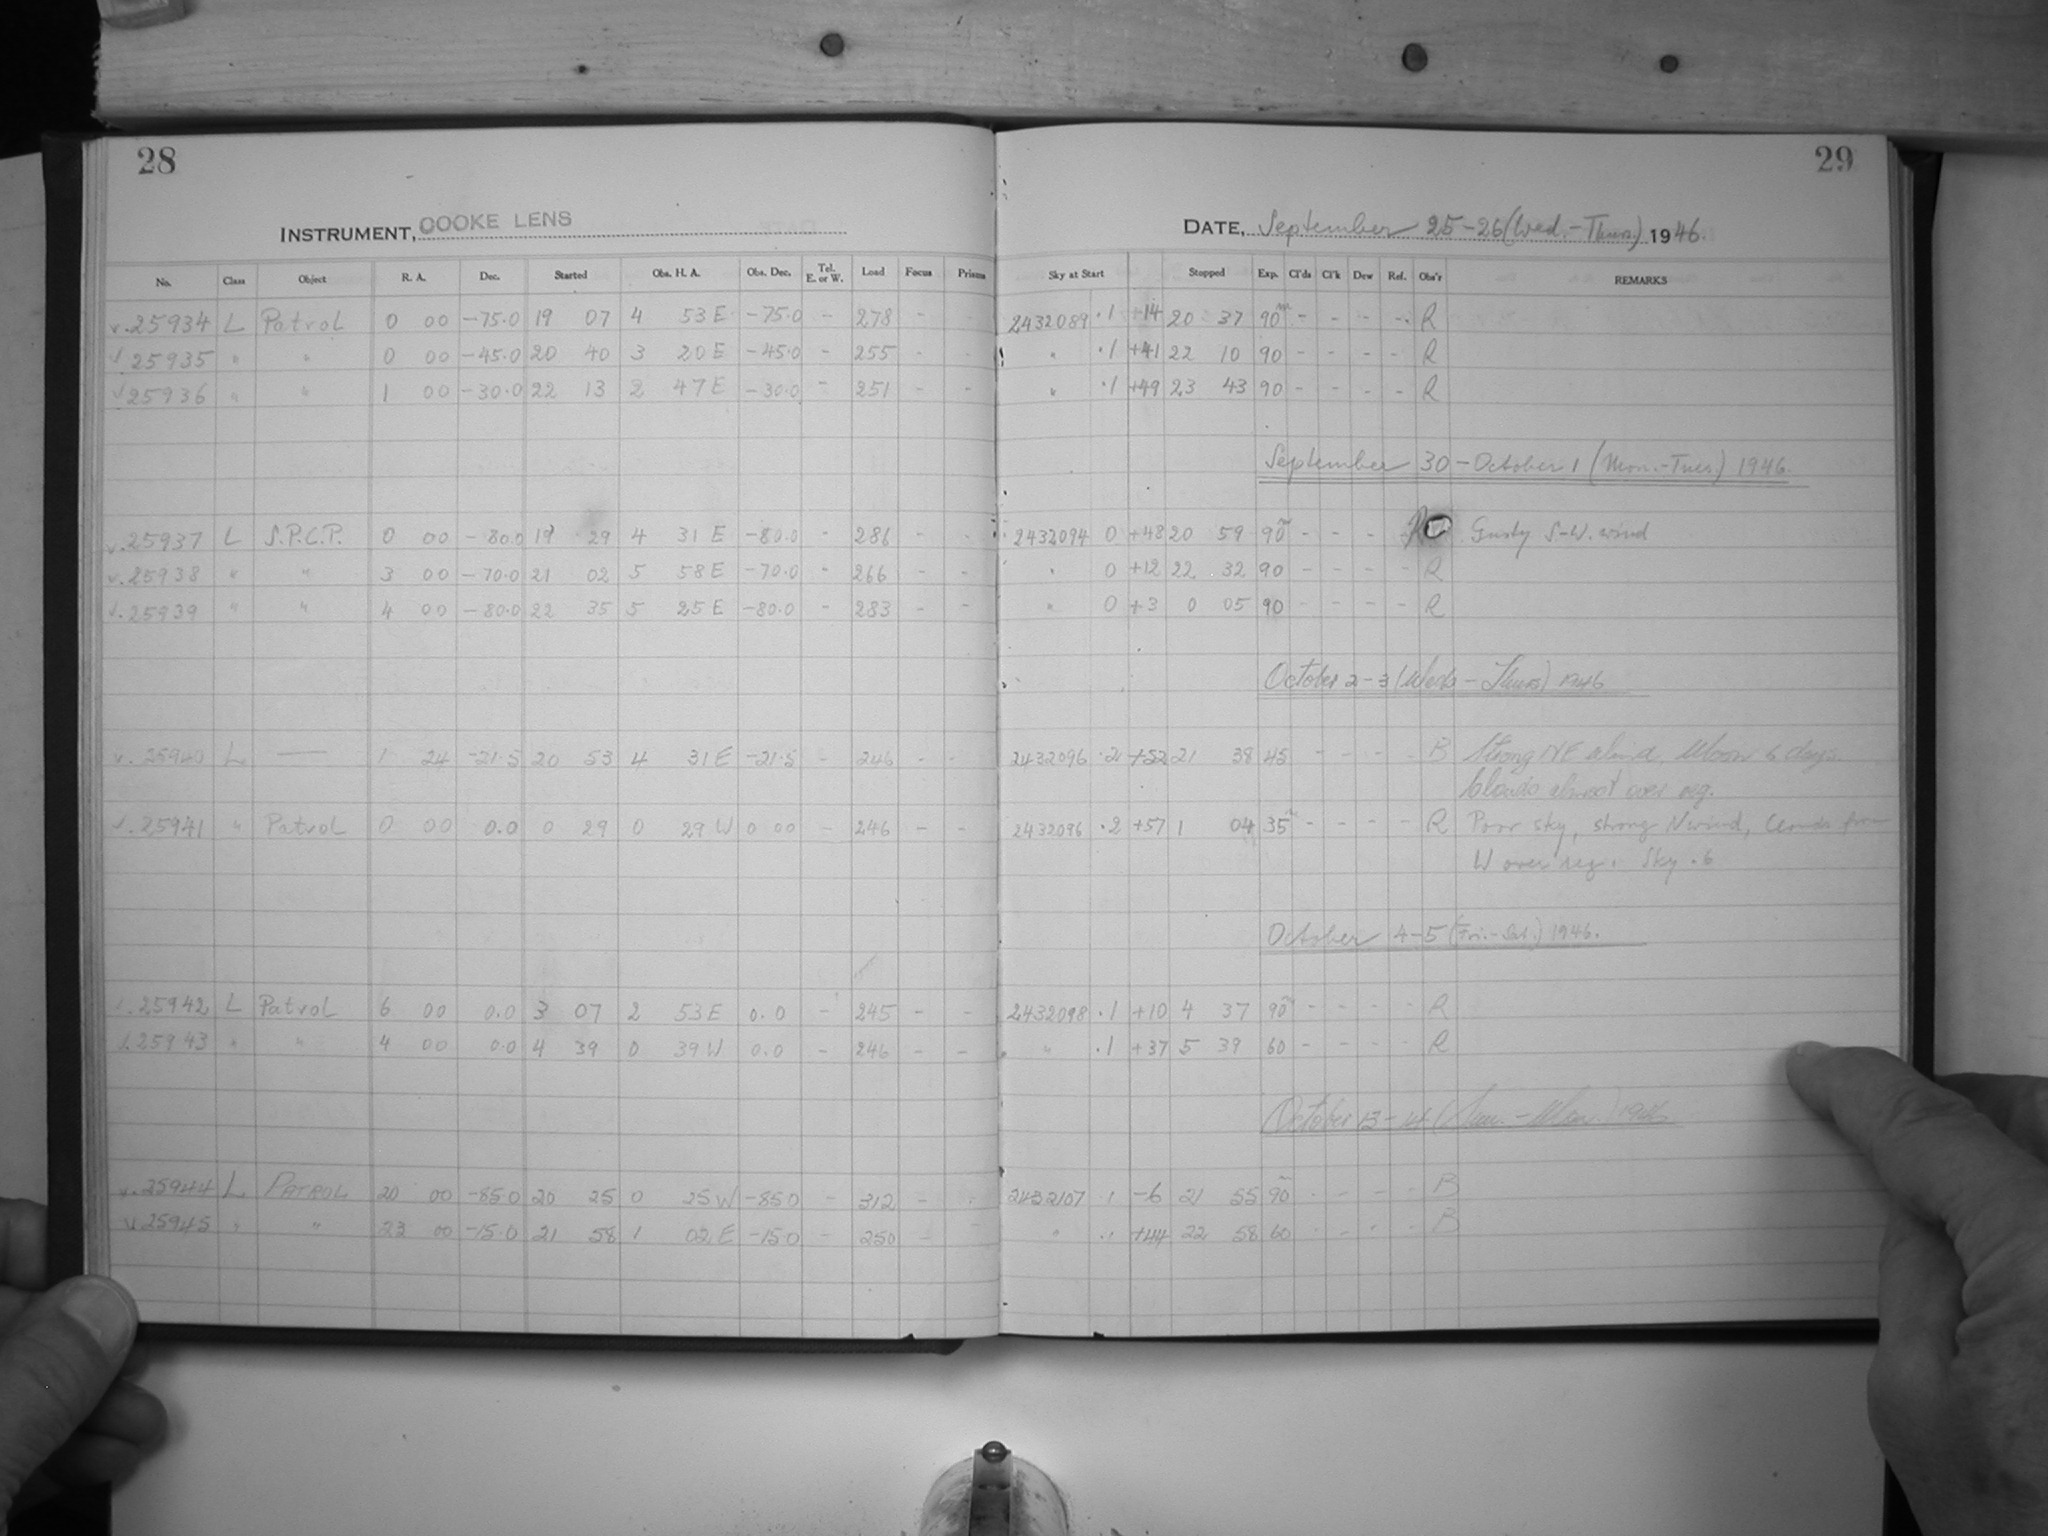 28 29
INSTRUMENT, COOKE LENS DATE, September 25-26 (Wed.-Thurs.) 1946.
No. Class Object R. A. Dec. Started Obs. H. A. Obs. Dec. Tel. E. or W. Load Focus Prisms Sky at Start Stopped Exp. Cl'ds Cl'k Dew Ref. Obs'r REMARKS
v. 25934 L Patrol 0 00 -75.0 19 07 4 53 E -75.0 - 278 - - 2432089 .1 +14 20 37 90m - - - - R
√ 25935 " " 0 00 -45.0 20 40 3 20 E -45.0 - 255 - - " .1 +41 22 10 90 - - - - R
√ 25936 " " 1 00 -30.0 22 13 2 47 E -30.0 - 251 - - " .1 +49 23 43 90 - - - - R
September 30 - October 1 (Mon.-Tues.) 1946.
v. 25937 L S.P.C.P. 0 00 -80.0 19 29 4 31 E -80.0 - 286 - - 2432094 0 +48 20 59 90m - - - R Gusty S-W. wind
√. 25938 " " 3 00 -70.0 21 02 5 58 E -70.0 - 266 - - " 0 +12 22 32 90 - - - - R
√. 25939 " " 4 00 -80.0 22 35 5 25 E -80.0 - 283 - - " 0 +3 0 05 90 - - - - R
October 2-3 (Weds - Thurs) 1946
v. 25940 L — 1 24 -21.5 20 53 4 31 E -21.5 - 246 - - 2432096 .2 +52 21 38 45 - - - - B Strong NE wind, Moon 6 days.
Clouds almost over reg.
√. 25941 " Patrol 0 00 0.0 0 29 0 29 W 0 00 - 246 - - 2432096 .2 +57 1 04 35m - - - - R Poor sky, strong N wind, Clouds from
W over reg. Sky .6
October 4-5 (Fri.-Sat.) 1946.
√. 25942 L Patrol 6 00 0.0 3 07 2 53 E 0.0 - 245 - - 2432098 .1 +10 4 37 90m - - - - R
√. 25943 " " 4 00 0.0 4 39 0 39 W 0.0 - 246 - - " .1 +37 5 39 60 - - - - R
October 13-14 (Sun. - Mon.) 1946
v. 25944 L PATROL 20 00 -85.0 20 25 0 25 W -85.0 - 312 - - 2432107 .1 -6 21 55 90m - - - - B
√ 25945 " " 23 00 -15.0 21 58 1 02 E -15.0 - 250 - " .1 +44 22 58 60 - - - - B